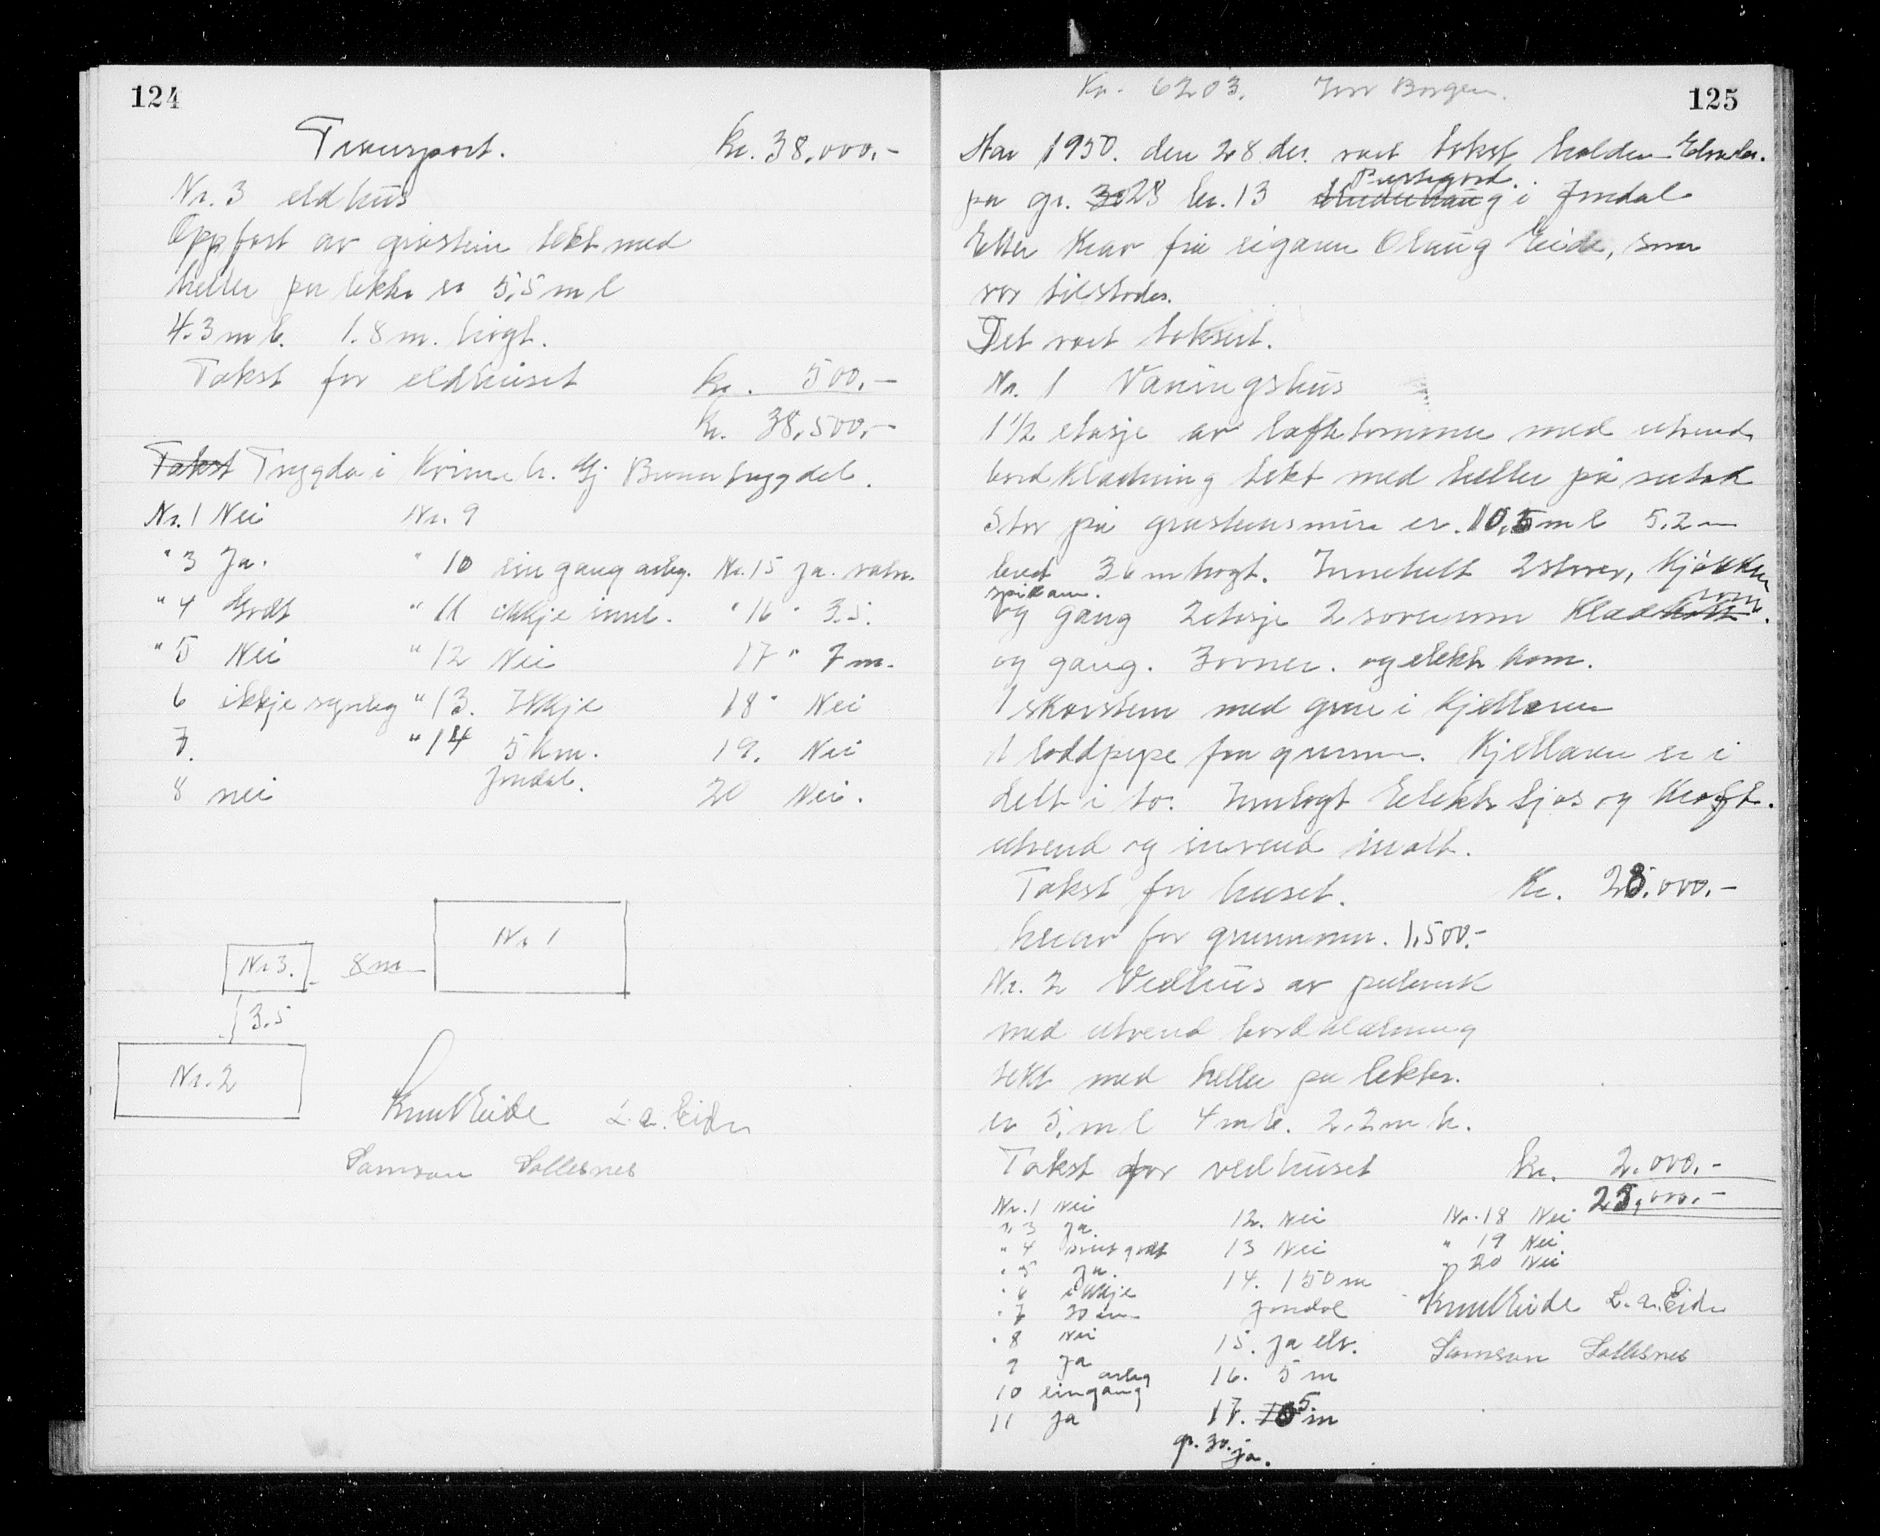 124
Transport. kr. 38.000.-
Nr. 3 eldhus
Oppført av gråstein tekt med
heller på lekter er 5,5 m l
4.3 m b. 1.8 m. høgt.
Takst for eldhuset kr. 500.-
kr. 38.500.-
Takst Trygda i h. Gj Brunutrygdel.
Nr. 1 Nei Nr. 9
" 3 Ja. " 10 ein gang årleg. Nr. 15 ja. vatn.
" 4 Godt " 11 ikkje innl. " 16 " 3.5.
" 5 Nei " 12 Nei 17 " 7 m.
6 ikkje synleg " 13. Ikkje 18 " Nei
7. " 14 5 km. 19. Nei
Jondal.
8 nei 20 Nei.
Nr 1
Nr 3. 8 m
3.5
Nr. 2
Knut Eide L. A. Eide
Samson Sollesnes
125
Kr. 6203. Borgen.
År 1950. den 28 des. vart takst halden
på gr. 30 28 br. 13 i Jondal
Etter krav frå eigaren Olaug Eide, som
var tilstades.
Det vart taksert.
Nr. 1 Våningshus
1 1/2 etasje av laftetømmer med utvend
bordkledning tekt med heller på sutak
Står på gråsteinsmur er 10,5 m l 5.2 m
bred 3 6 m høgt. Innehelt 2 stover, kjøkken
spiskam.
og gang 2 etasje 2 soverom Kled rom.
og gang. 3 ovner. og elektr kom.
1 skorstein med grue i kjellaren
1 loddpipe fra grunnen. Kjellaren er i
delt i to. Innlagt Elektr ljos og kraft.
utvend og invend malt.
Takst for huset. Kr. 25.000.-
herav for grunnmur. 1.500.-
Nr. 2 Vedhus av
med utvend bordkledning
tekt med heller på lekter.
er 5. m l 4 m b. 2.2 m h.
Takst for vedhuset kr. 2.000.-
Nr. 1 Nei 25.000.-
" 3 Ja. 12. Nei Nr. 18 Nei
" 4 godt 13 Nei " 19 Nei
" 5 Ja. 14. 150 m " 20 Nei
" 6 ikkje Jondal Knut Eide L. A. Eide
" 7 30 cm
" 8 Nei 15. ja elv. Samson Sollesnes
9 Ja 16. 5 m
10 ein gang årleg
11 Ja 17. 5 m
gr. 30. ja.